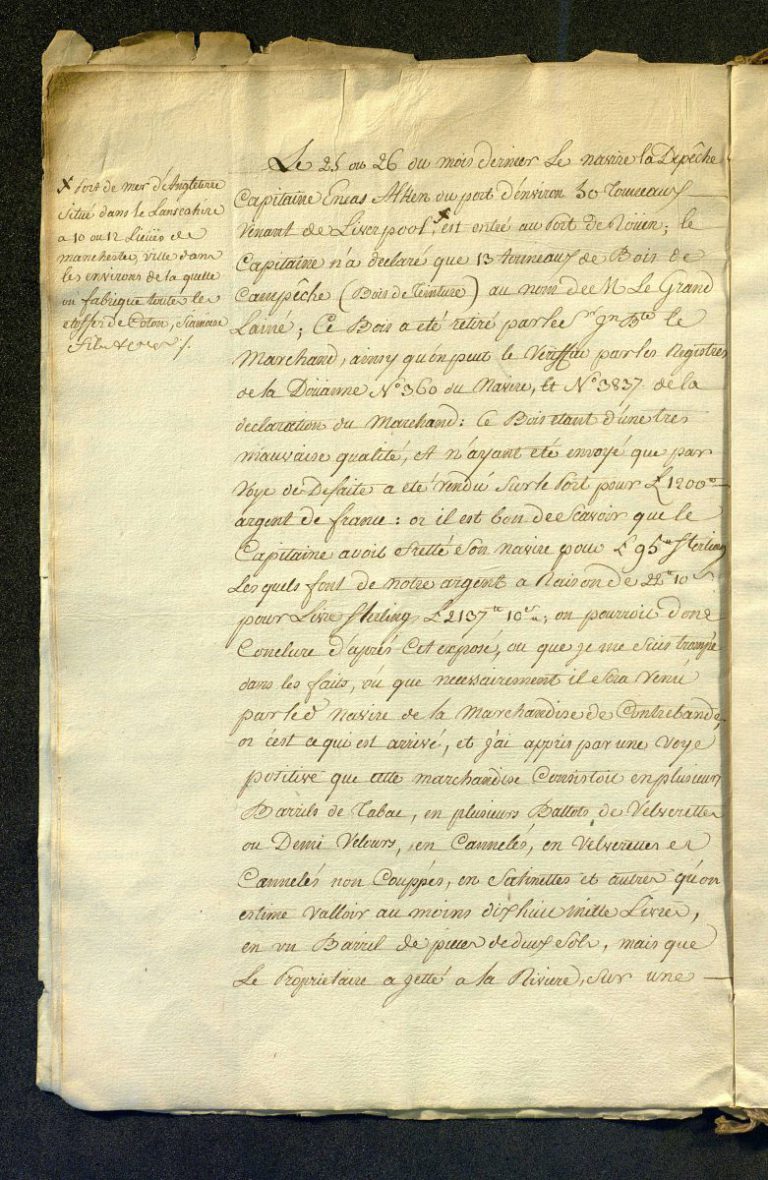 ✗ Port de mer d'Angleterre
situé dans le Lanscashire
a 10 ou 12 Lieües de
manchester, ville dans
les environs de la quelle
on fabrique toutes les
etoffes de Coton, Siamoise
Fil &
Le 25 ou 26 du mois dernier Le navire la Depêche
Capitaine Eneas Alken du port d'environ 30 Tonneaux
Venant de Liverpool,✗ est entré au Port de Roüen; le
Capitaine n'a declaré que 13 tonneaux de Bois de
Campêche (Bois de Teinture) au nom de M. Le Grand
Lainé; Ce Bois a eté retiré par le Sr. Jn. Bte. le
Marchand, ainsy qu'on peut le Veriffier par les Registres
de la Doüanne No. 360 du Navire, et No. 3837 de la
declaration du Marchand: Ce Bois etant d'une tres
mauvaise qualité, et n'ayant eté envoyé que par
Voye de Defaite a eté vendu sur le Port pour £ 1200
argent de france: or il est bon de Scavoir que le
Capitaine avoit fretté son navire pour £ 95 Sterling
Les quels font de notre argent a Raison de 22tt 10s
pour Livre Sterling, £ 2137tt 10s; on pourroit donc
Conclure d'aprés Cet exposé, ou que je me suis trompé
dans les faits, ou que necessairement il sera venu
par led. Navire de la Marchandise de Contrebande,
or c'est ce qui est arrivé, et j'ai appris par une Voye
positive que cette marchandise Consistoit en plusieurs
Barrils de Tabac, en plusieurs Ballots de Velverettes
ou Demi Velours, en Cannelés, en Velverettes et
Cannelés non Couppés, en Satinettes et autres qu'on
estime valloir au moins dix huit mille Livres,
en un Barril de pieces de deux Sols, mais que
Le Propriétaire a jetté a la Riviere, sur une